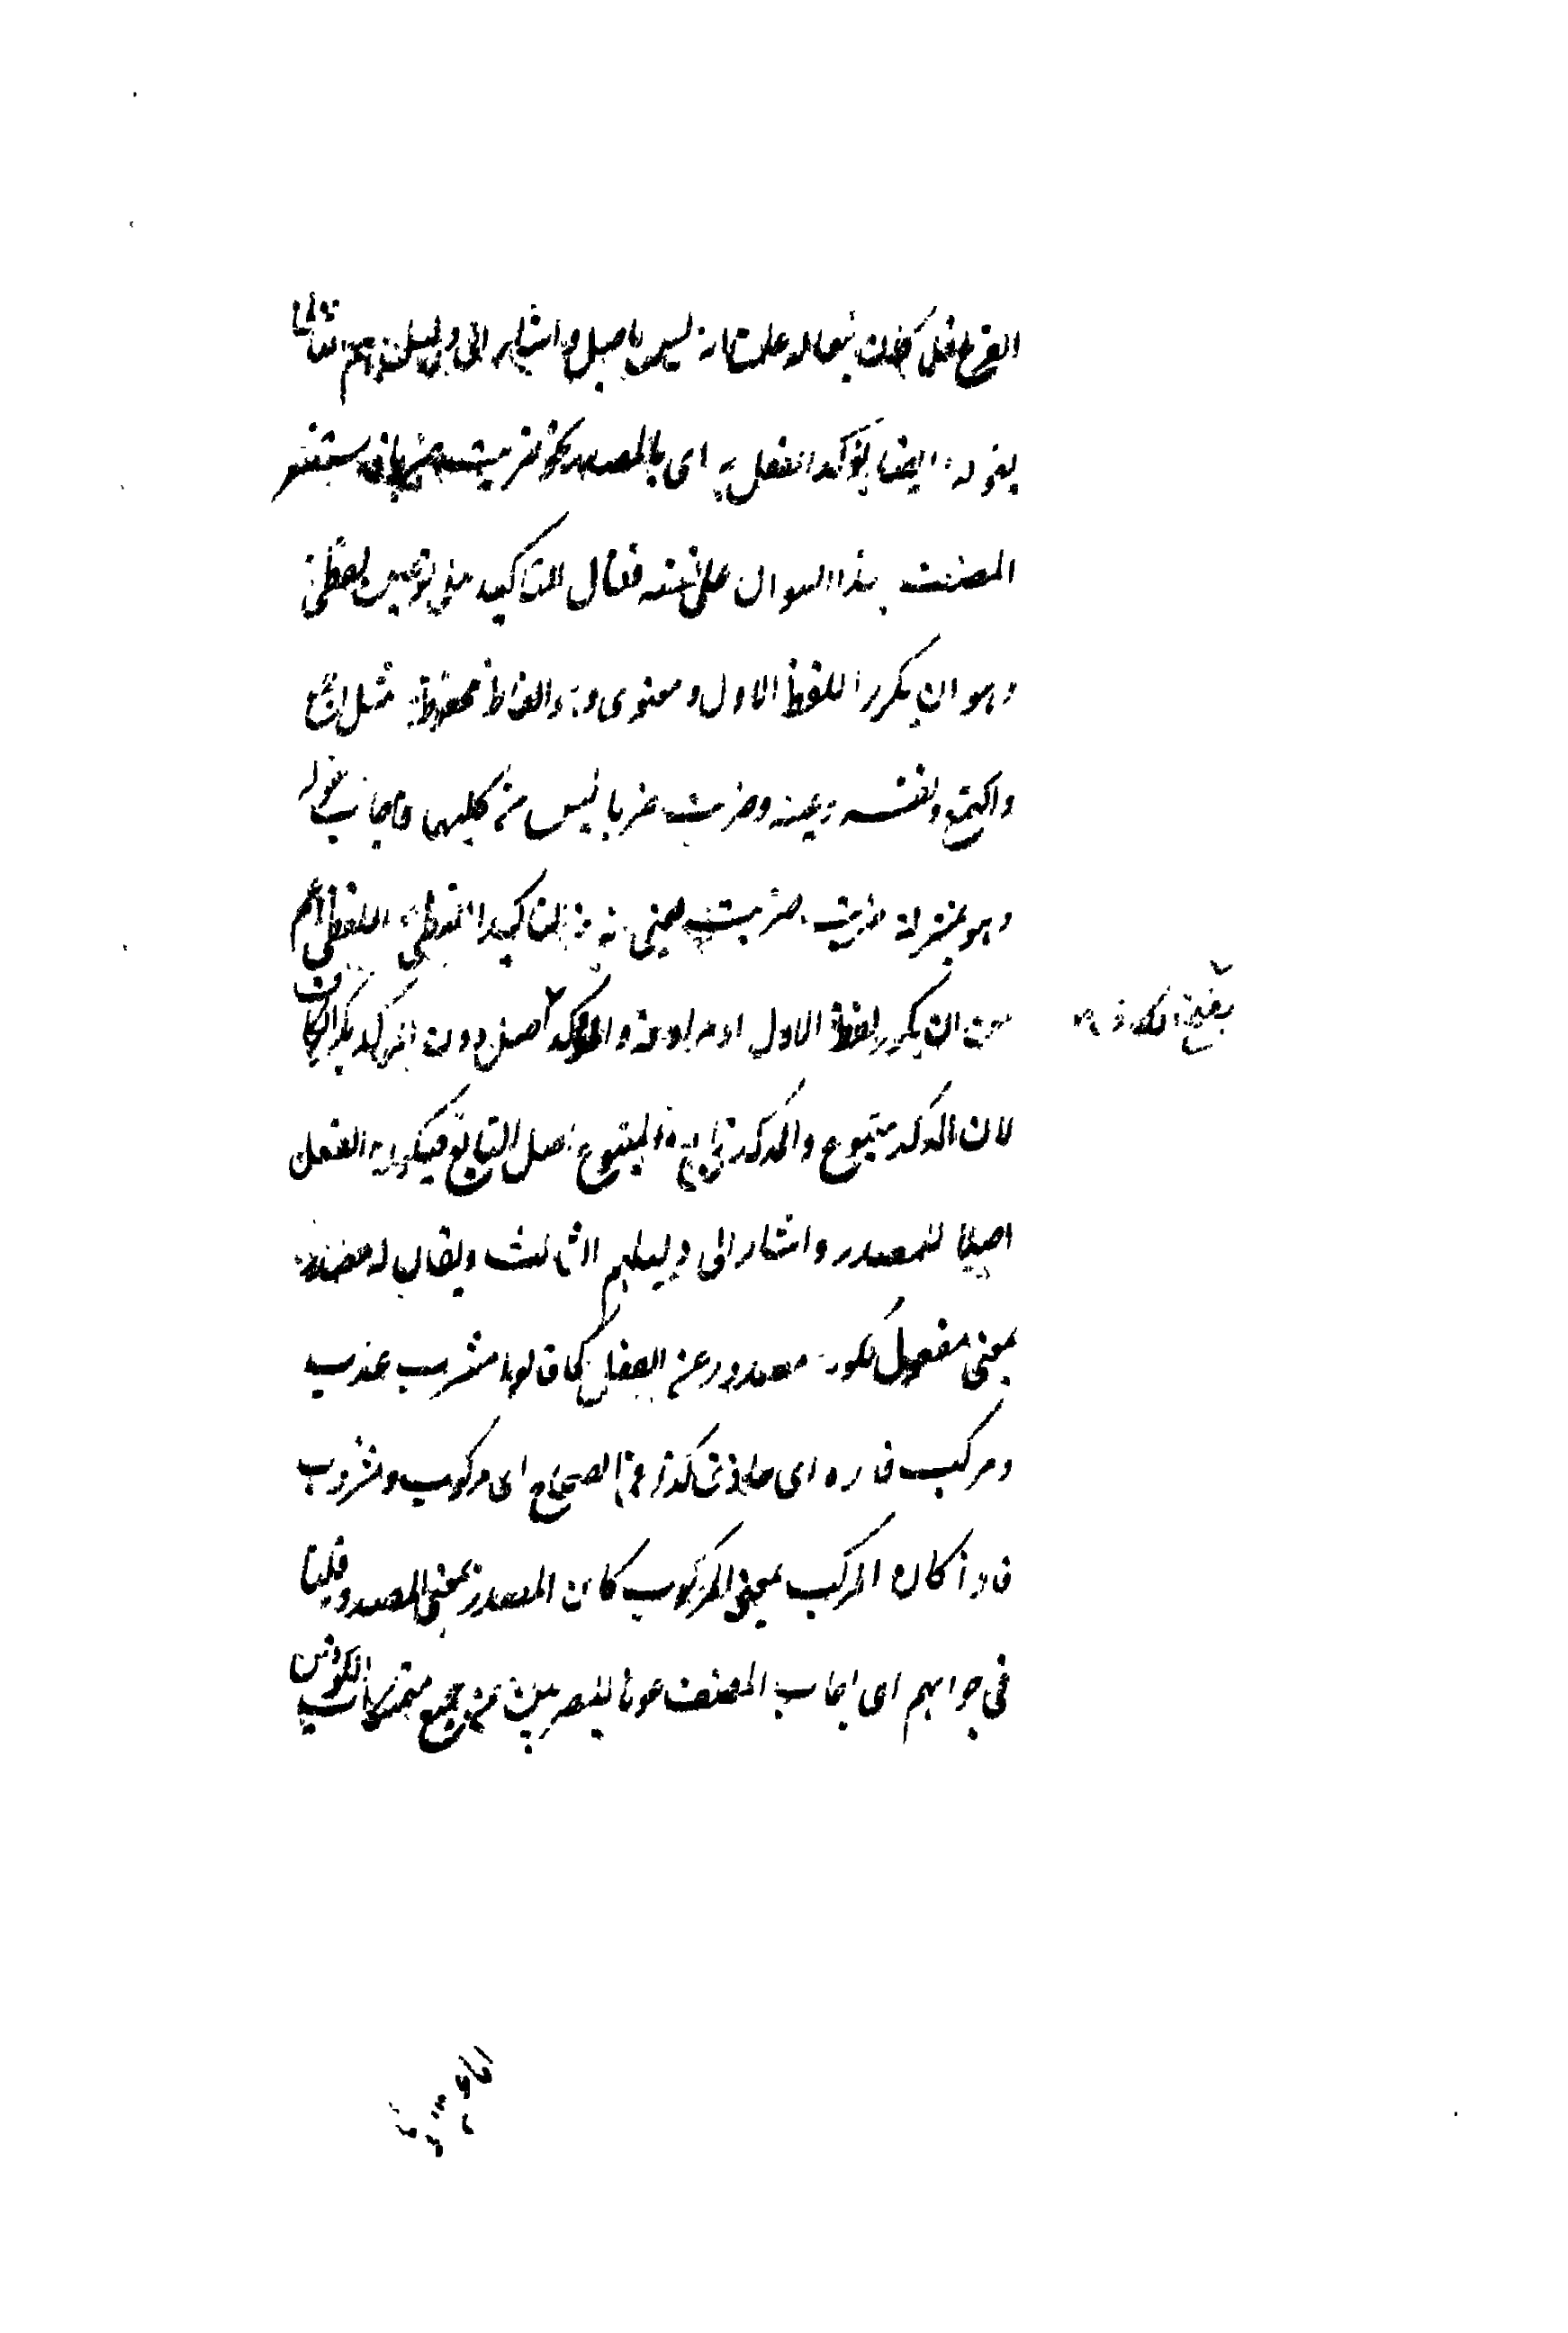 الفرع فلما كان تبعا له علمنا انه ليس باصل واشار الى دليلهم الثانى
بقوله ايضا يؤكد الفعل به اى بالمصدر نحو ضربت ضربا فاستشعر
المصنف هذا السوال على نفسه فقال التاكيد على نوعين لفظى
وهو ان يكرر اللفظ الاول ومعنوى وله الفاظ محفوظة مثل اجمع
واكتع ونفسه وعينه وضربت ضربا ليس من كليهما فاجاب بقوله
وهو بمنزلة ضربت ضربت يعنى انه من التاكيد اللفظى اللفظى اعم
من ان يكرر لفظ الاول او مرادفه والمؤكد اصل دون المؤكد بكسر الكاف
بفتح الكاف
لان المؤكد متبوع والمؤكد تابع والمتبوع اصل التابع فيكون الفعل
اصلا للمصدر واشار الى دليلهم الثالث ويقال له مصدر
بمعنى مفعول لكونه مصدور عن الفعل كما قالوا مشرب عذب
ومركب فاره اى حاذق كذا فى الصحاح اى مركوب ومشروب
فاذا كان المركب بمعنى المركوب كان المصدر بمعنى المصدور قلنا
فى جوابهم اى اجاب المصنف عونا للبصريين عن جميع متمسكات الكوفيين